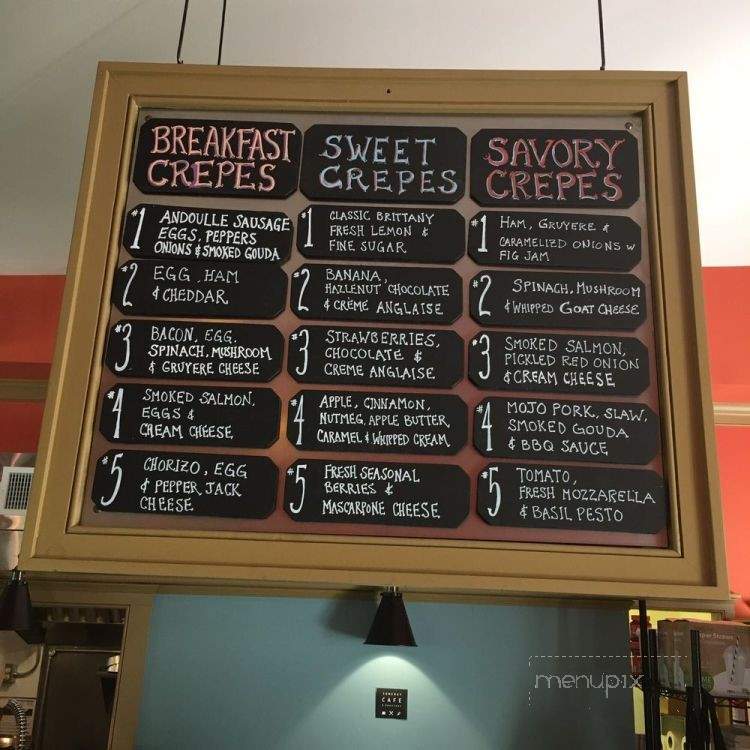 BREAKFAST
CREPES
#1 ANDOULLE SAUSAGE
EGGS, PEPPERS
ONIONS & SMOKED GOUDA
#2 EGG, HAM
& CHEDDAR
#3 BACON, EGG,
SPINACH, MUSHROOM
& GRUYERE CHEESE
#4 SMOKED SALMON,
EGGS &
CREAM CHEESE
#5 CHORIZO, EGG
& PEPPER JACK
CHEESE
SWEET
CREPES
#1 CLASSIC BRITTANY
FRESH LEMON &
FINE SUGAR
#2 BANANA,
HAZLENUT CHOCOLATE
& CRÈME ANGLAISE
#3 STRAWBERRIES,
CHOCOLATE &
CREME ANGLAISE
#4 APPLE, CINNAMON,
NUTMEG, APPLE BUTTER,
CARAMEL & WHIPPED CREAM
#5 FRESH SEASONAL
BERRIES &
MASCARPONE CHEESE
SAVORY
CREPES
#1 HAM, GRUYERE &
CARAMELIZED ONIONS W
FIG JAM
#2 SPINACH, MUSHROOM
& WHIPPED GOAT CHEESE
#3 SMOKED SALMON,
PICKLED RED ONION
& CREAM CHEESE
#4 MOJO PORK, SLAW,
SMOKED GOUDA
& BBQ SAUCE
#5 TOMATO,
FRESH MOZZARELLA
& BASIL PESTO
CAFE
menupix